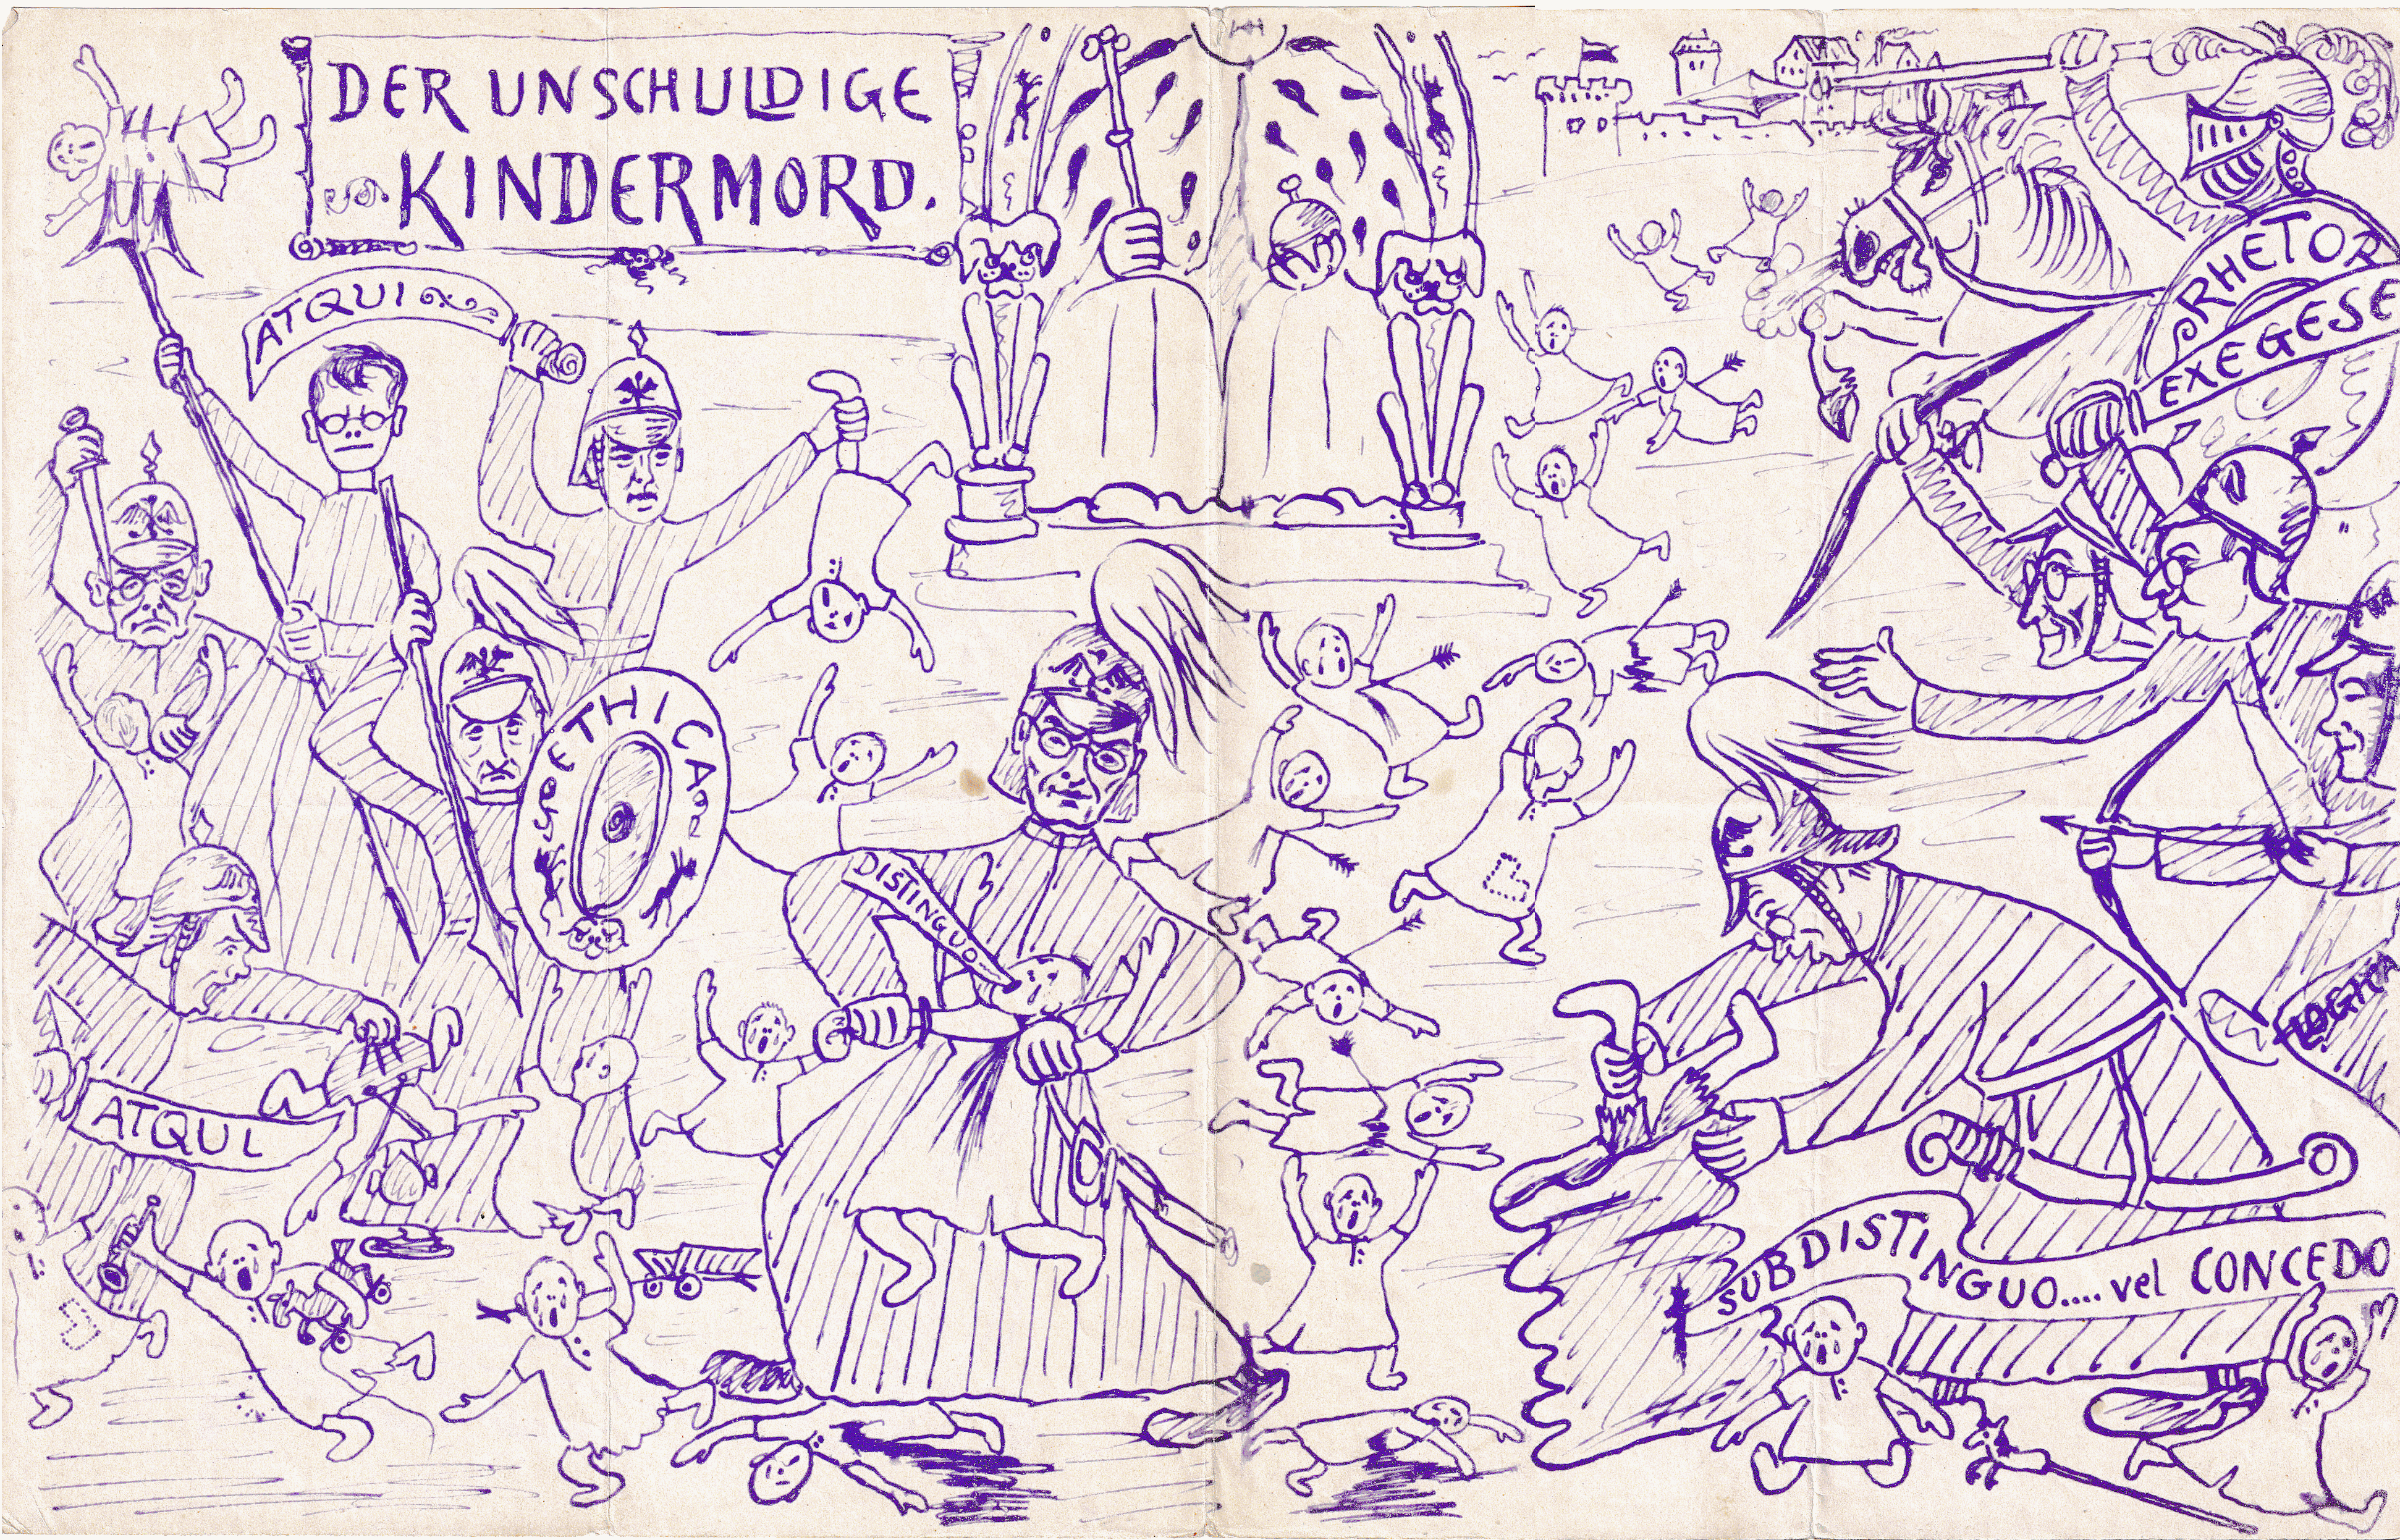 DER UNSCHULDIGE
KINDERMORD.
ATQUI
RHETOR
EXEGESE
ETHICA
DISTINGUO
LOGICA
ATQUI
SUBDISTINGUO.... vel CONCEDO